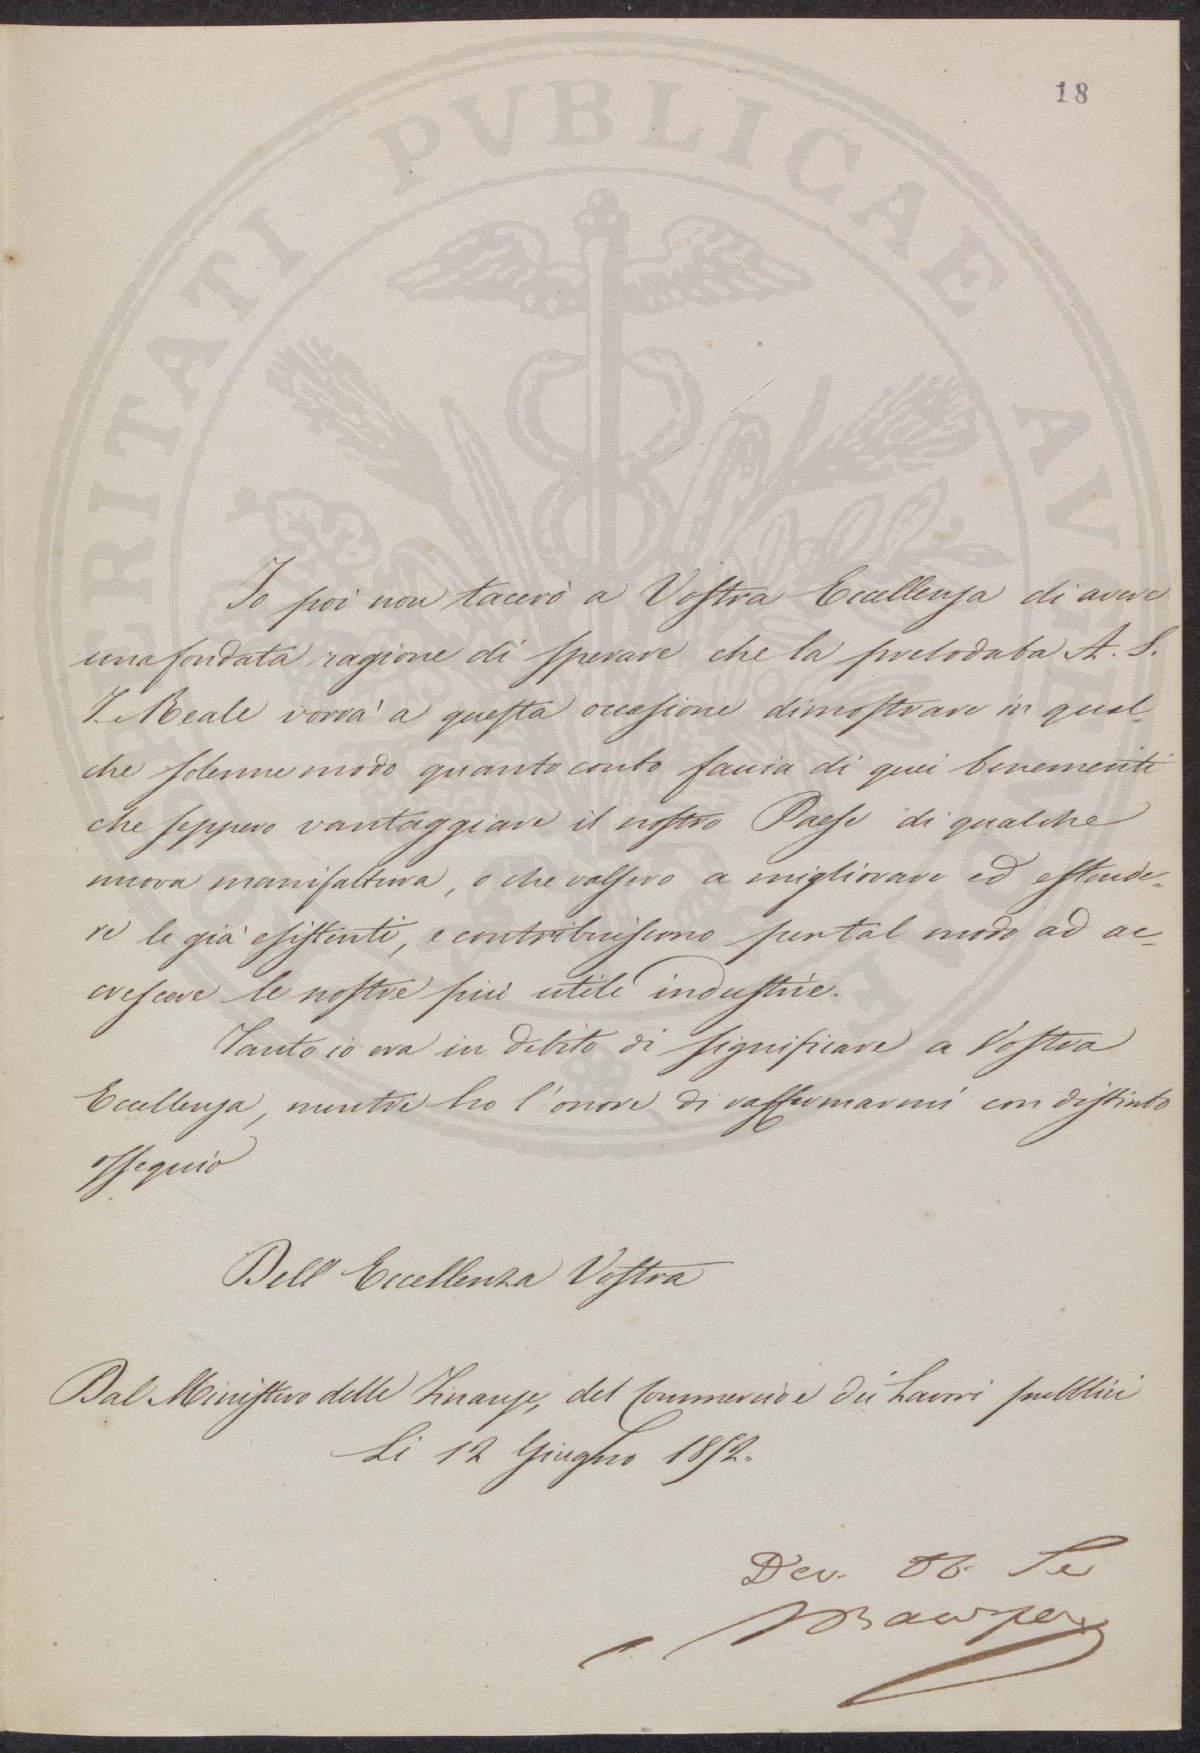 18
Io poi non tacerò a Vostra Eccellenza di avere
una fondata ragione di sperare che la prelodata A. S.
I. Reale vorrà a questa occasione dimostrare in qual-
che solenne modo quanto conto faccia di quei benemeriti
che seppero vantaggiare il nostro Paese di qualche
nuova manifattura, o che valsero a migliorare ed estende-
re le già esistenti, e contribuiscono per tal modo ad ac-
crescere le nostre più utili industrie.
Tanto io era in debito di significare a Vostra
Eccellenza, mentre ho l'onore di raffermarmi con distinto
ossequio
Dell'Eccellenza Vostra
Dal Ministero delle Finanze, del Commercio e dei Lavori pubblici
Li 12 Giugno 1852.
Dev. Ob. Se